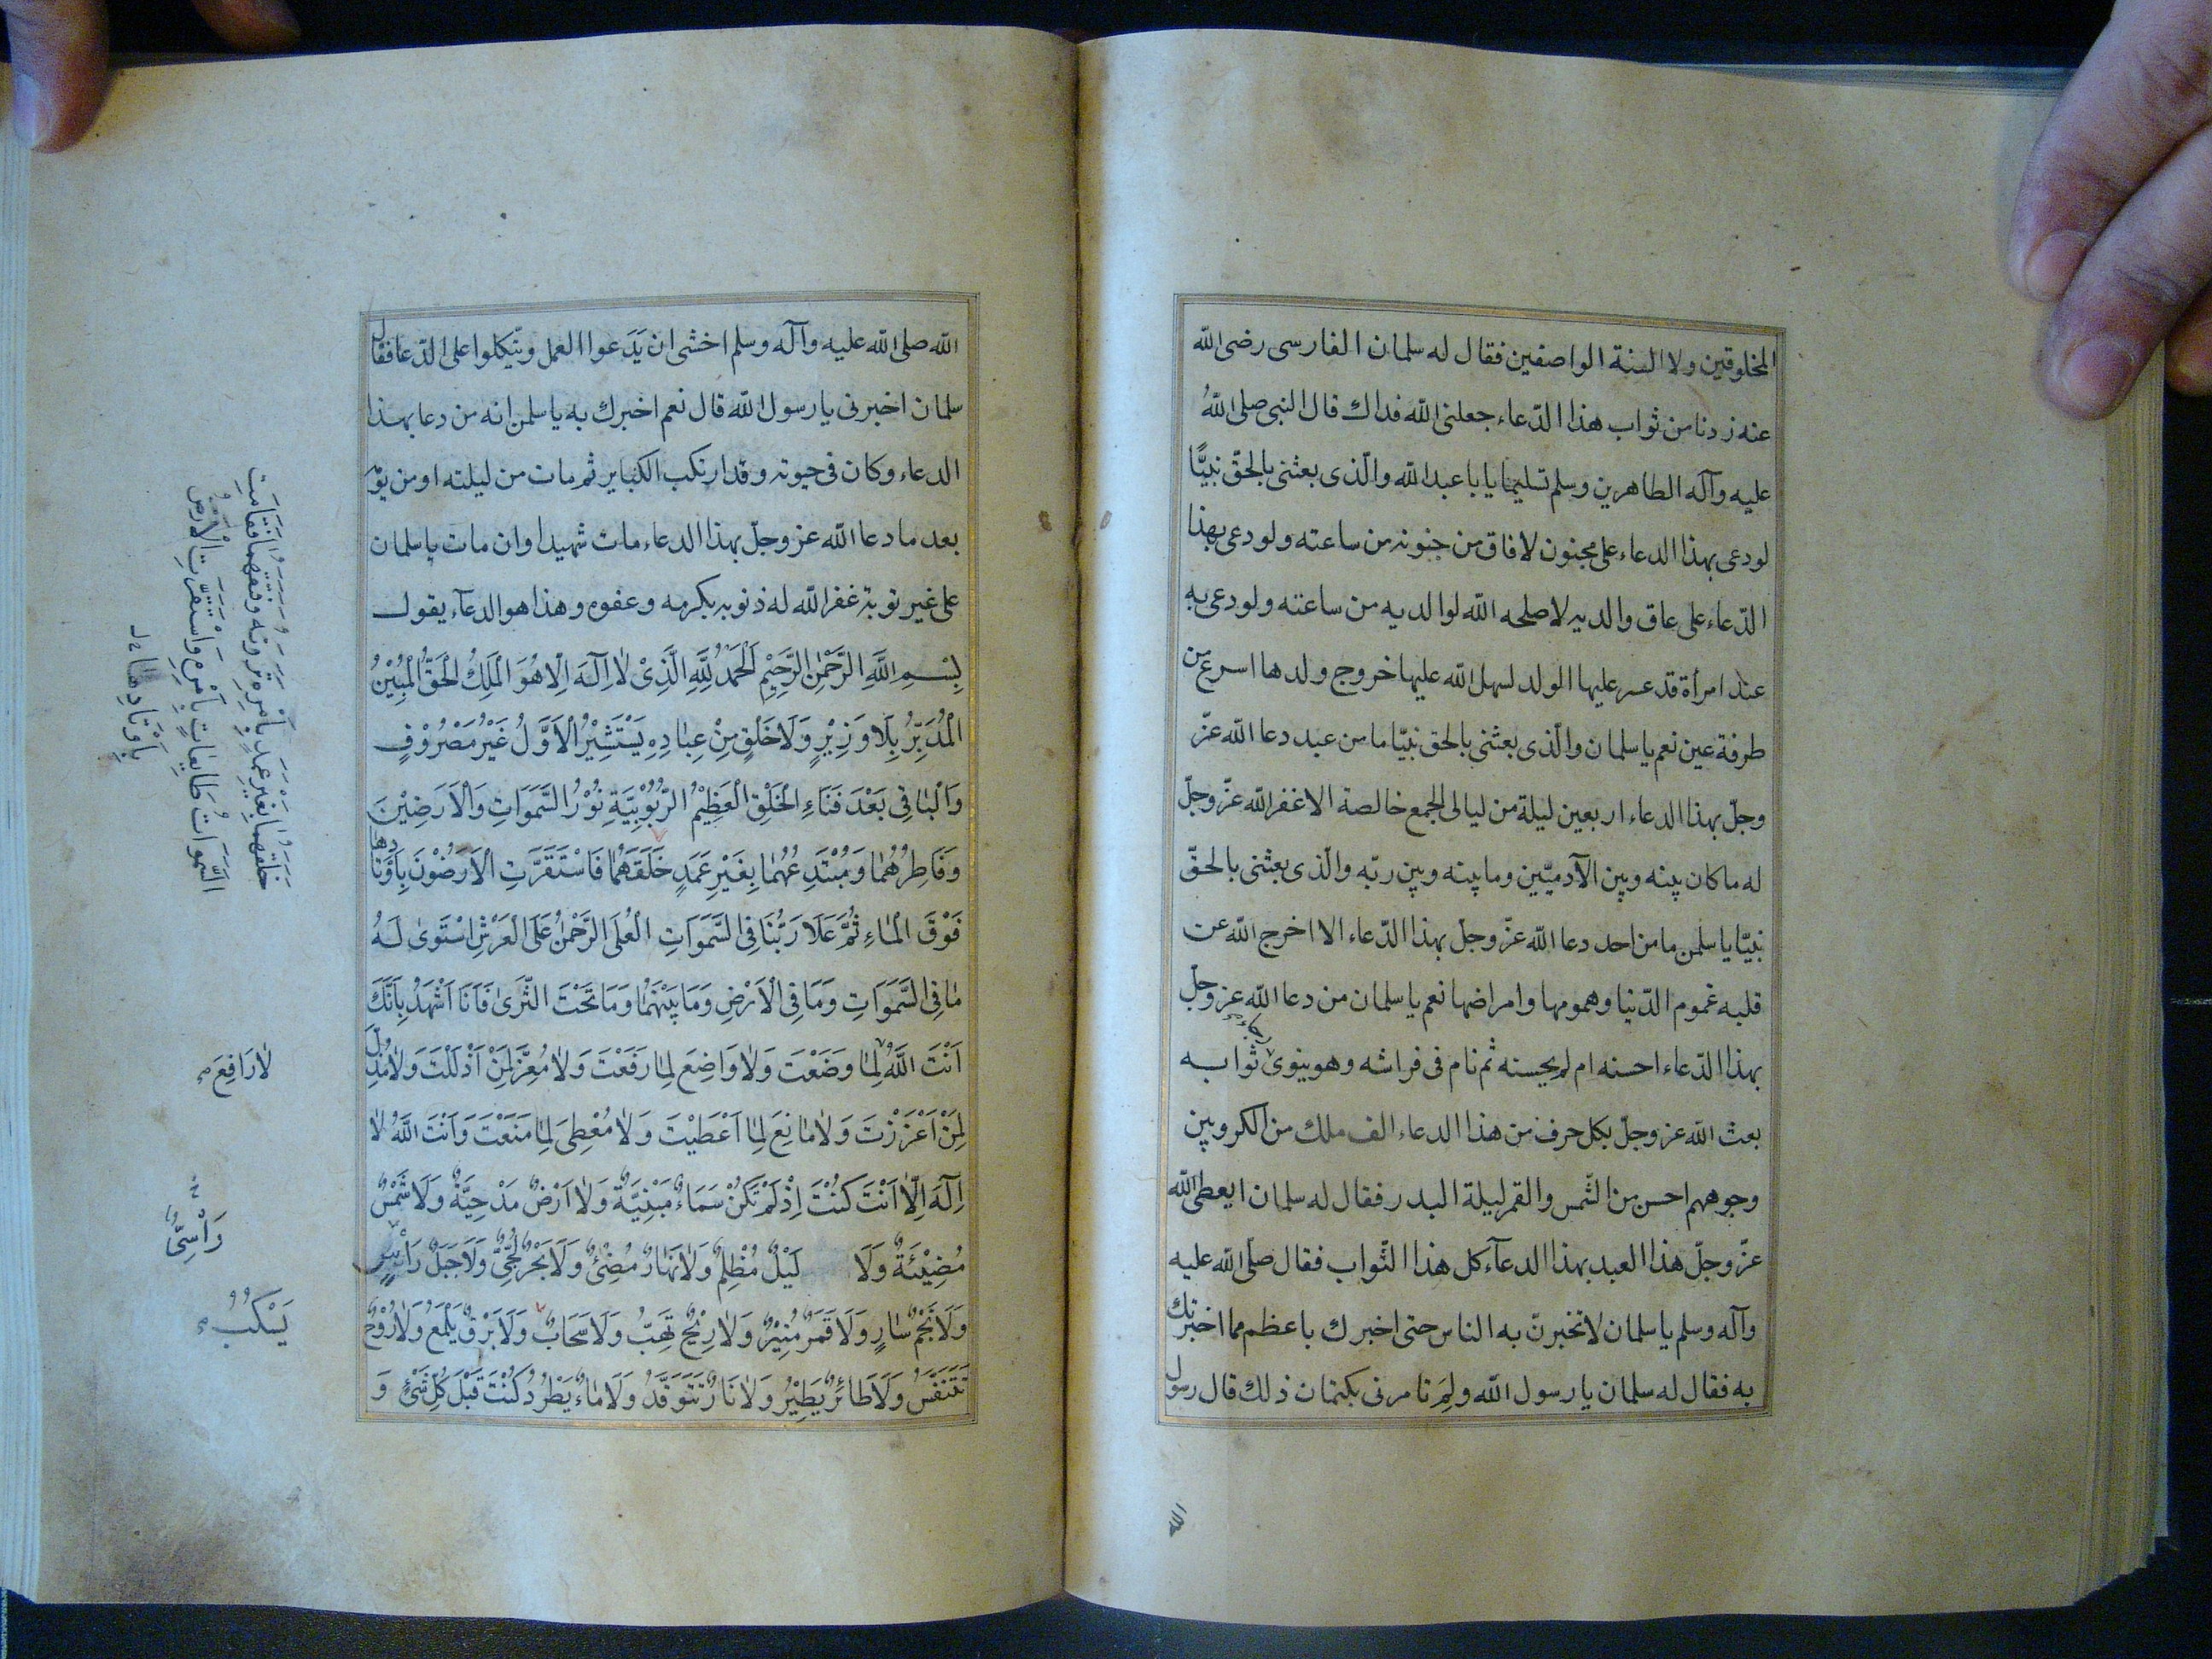 المخلوقين ولا السنة الواصفين فقال له سلمان الفارسى رضى الله
عنه زدنا من ثواب هذا الدّعاء جعلنى الله فداك قال النبى صلى اللهُ
عليه وآله الطاهرين وسلم تسليما يا با عبد الله والّذى بعثنى بالحقّ نبيًّا
لو دعى بهذا الدعاء على مجنون لافاق من جنونه من ساعته ولو دعى بهذا
الدّعاء على عاق والديه لاصلحه الله لوالديه من ساعته ولو دعى به
عند امرأة قد عسر عليها الولد لسهل الله عليها خروج ولدها اسرع من
طرفة عين نعم يا سلمان والّذى بعثنى بالحق نبيّا ما من عبد دعا الله عزّ
وجلّ بهذا الدعاء اربعين ليلة من ليالى الجمع خالصة الا غفر الله عزّ وجلّ
له ما كان بينه وبين الآدميّين وما بينه وبين ربّه والّذى بعثنى بالحقّ
نبيّا يا سلمن ما من احد دعا الله عزّ وجلّ بهذا الدّعاء الا اخرج الله عن
قلبه غموم الدّنيا وهمومها وامراضها نعم يا سلمان من دعا الله عز وجلّ
بهذا الدّعاء احسنه ام لم يحسنه ثم نام فى فراشه وهو ينوى ثوابه
بعث الله عز وجلّ بكل حرف من هذا الدعاء الف ملك من الكروبين
وجوههم احسن من الشّمس والقمر ليلة البدر فقال له سلمان ايعطى الله
عزّ وجلّ هذا العبد بهذا الدعآء كل هذا الثّواب فقال صلّى الله عليه
وآله وسلم يا سلمان لا تخبرنّ به الناس حتى اخبرك باعظم مما اخبرتك
به فقال له سلمان يا رسول الله ولِمَ تامرنى بكتمان ذلك قال رسول
الله
الله صلى الله عليه وآله وسلم اخشى ان يَدَعوا العمل ويتّكلوا على الدّعا فقال
سلمان اخبرنى يا رسول الله قال نعم اخبرك به يا سلمن انه من دعا بهذا
الدعاء وكان فى حيوته وقد ارتكب الكباير ثم مات من ليلته او من يومه
بعد ما دعا الله عز وجلّ بهذا الدعاء مات شهيدا وان مات يا سلمان
على غير توبة غفر الله له ذنوبه بكرمه وعفوه وهذا هو الدعآء يقول
بِسْمِ اللَّهِ الرَّحْمٰنِ الرَّحِيْمِ اَلْحَمْدُ لِلَّهِ الَّذِىْ لَا اِلٰهَ اِلَّا هُوَ الْمَلِكُ الْحَقُّ الْمُبِيْنُ
الْمُدَبِّرُ بِلَا وَزِيْرٍ وَلَا خَلْقٍ مِنْ عِبَادِهِ يَسْتَشِيْرُ الْاَوَّلُ غَيْرُ مَصْرُوْفٍ
وَالْبَاقِى بَعْدَ فَنَاءِ الْخَلْقِ الْعَظِيْمُ الرُّبُوْبِيَّةِ نُوْرُ السَّمٰوَاتِ وَالْاَرَضِيْنَ
وَفَاطِرُهُمَا وَمُبْتَدِعُهُمَا بِغَيْرِ عَمَدٍ خَلَقَهُمَا فَاسْتَقَرَّتِ الْاَرَضُوْنَ بِاَوْتَادِهَا
فَوْقَ الْمَاءِ ثُمَّ عَلَا رَبُّنَا فِى السَّمَوَاتِ الْعُلَى الرَّحْمٰنُ عَلَى الْعَرْشِ اسْتَوٰى لَهُ
مَا فِى السَّمَوَاتِ وَمَا فِى الْاَرْضِ وَمَا بَيْنَهُمَا وَمَا تَحْتَ الثَّرٰى فَاَنَا اَشْهَدُ بِاَنَّكَ
اَنْتَ اللَّهُ لِمَا وَضَعْتَ وَلَا وَاضِعَ لِمَا رَفَعْتَ وَلَا مُعِزَّ لِمَنْ اَذْلَلْتَ وَلَا مُذِلَّ
لِمَنْ اَعْزَزْتَ وَلَا مَانِعَ لِمَا اَعْطَيْتَ وَلَا مُعْطِىَ لِمَا مَنَعْتَ وَاَنْتَ اللَّهُ لَا
اِلٰهَ اِلَّا اَنْتَ كُنْتَ اِذْ لَمْ تَكُنْ سَمَاءٌ مَبْنِيَّةٌ وَلَا اَرْضٌ مَدْحِيَّةٌ وَلَا شَمْسٌ
مُضِيْئَةٌ وَلَا لَيْلٌ مُظْلِمٌ وَلَا نَهَارٌ مُضِىْءٌ وَلَا بَحْرٌ لُجِّىٌّ وَلَا جَبَلٌ رَاسٍ
وَلَا نَجْمٌ سَارٍ وَلَا قَمَرٌ مُنِيْرٌ وَلَا رِيْحٌ تَهِبُّ وَلَا سَحَابٌ وَلَا بَرْقٌ يَلْمَعُ وَلَا رُوْحٌ
تَتَنَفَّسُ وَلَا طَائِرٌ يَطِيْرُ وَلَا نَارٌ تَتَوَقَّدُ وَلَا مَاءٌ يَطْرُدُ كُنْتَ قَبْلَ كُلِّ شَىْءٍ وَ
خَلَقَهُمَا بِغَيْرِ عَمَدٍ بِاَمْرِهِ وَفَتَقَهُمَا فَقَامَتِ
السَّمَوَاتُ طَايِعَاتٍ بِاَمْرِهِ وَاسْتَقَرَّتِ الْاَرْضُ
بِاَوْتَادِهَا
لَا رَافِعَ
رَاْسِىٌّ
يَسْكُبُ